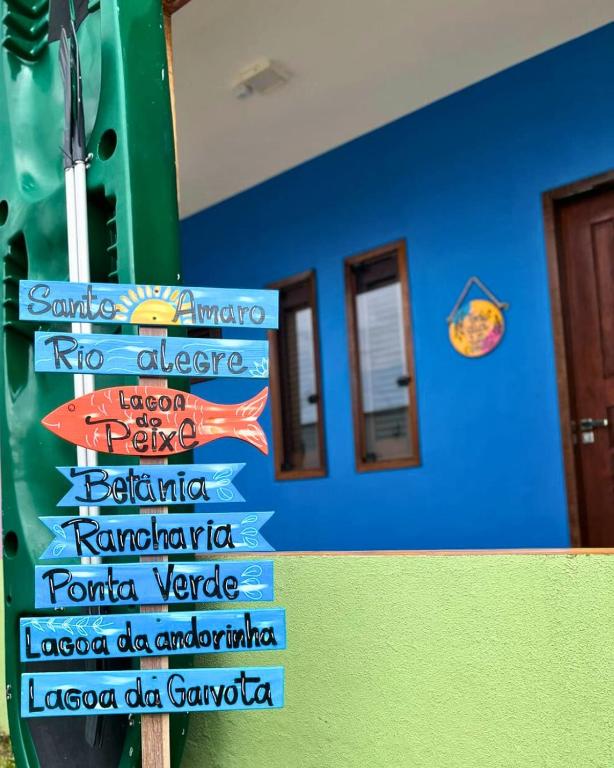 Santo Amaro
Rio alegre
LAGOA
do
PeixE
Betânia
Rancharia
Ponta Verde
Lagoa da andorinha
Lagoa da Gaivota